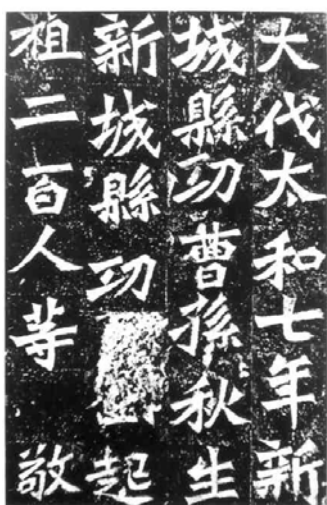 大代太和七年新
城縣功曹孫秋生
新城縣功起
祖二百人等敬